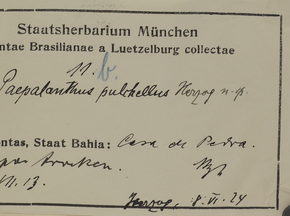 Staatsherbarium München
ntae Brasilianae a Luetzelburg collectae
11. b.
Paepalanthus pulchellus Herzog n. sp.
ontas, Staat Bahia: Casa de Pedra.
trocken.
VII. 13.
Herzog, 8. VI. 24